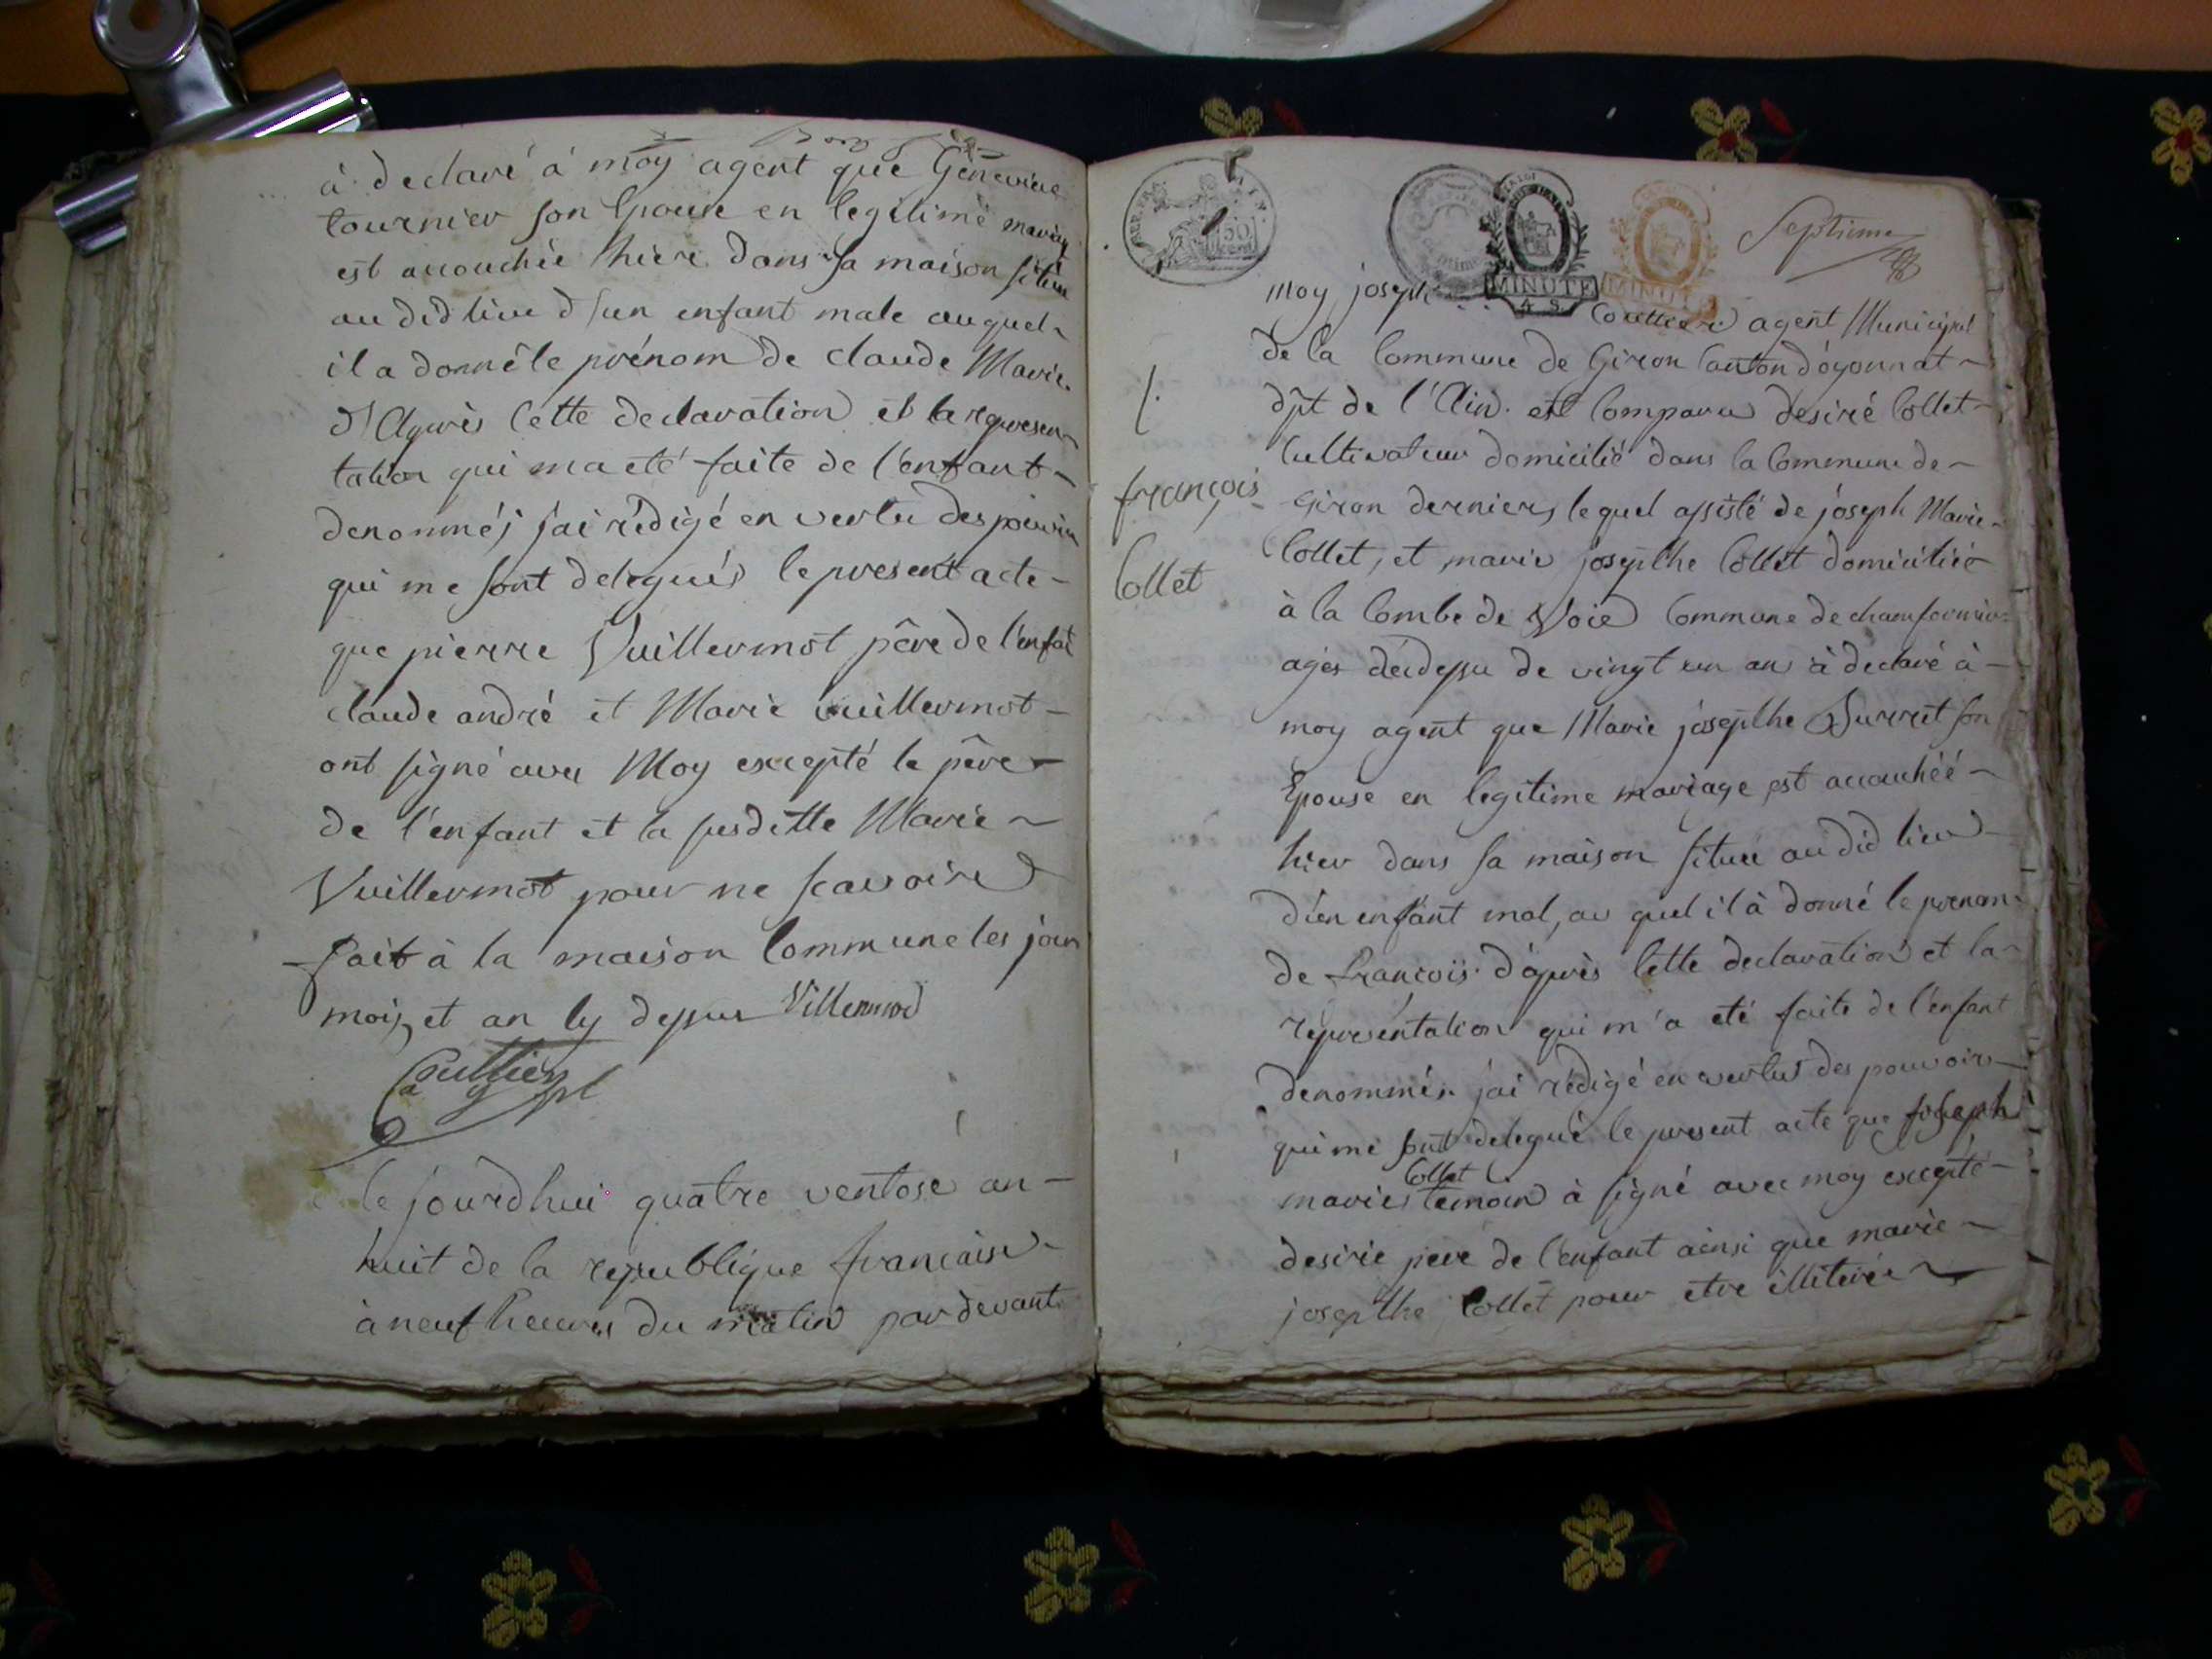 à declaré à moy agent que Genevieve
tournier son Epouse en legitime mariag
est accouchée hiere dans sa maison situé
au did lieu d'un enfant male auquel
il a donné le prénom de claude Marie.
D'Après Cette declaration et la represen-
tation qui ma eté faite de l'enfant
denommé; j'ai rédigé en vertu des pouvoir
qui me sont delegués le present acte
que pierre Vuillermot pêre de l'enfat
claude andré et Marie vuillermot
ont signé avec Moy excepté le pêre
de l'enfant et la susditte Marie
Vuillermot pour ne scavoire
fait à la maison Commune les jour
mois, et an cy dessus Villermod
le jourdhui quatre ventose an
huit de la republique francaise
à neuf heures du matin par devant
Septieme
MINUTE
moy joseph agent Municipal
de la Commune de Giron Canton d'oyonnat
dpt de l'Ain. est Comparu desiré Collet
Cultivateur domicilié dans la Commune de
françois
Giron derniers, le quel assisté de joseph Marie
Collet, et marie josepthe Collet domicilié
Collet
à la Combe de Voie Commune de
agés de dessu de vingt un an à declaré à
moy agent que Marie josepthe Burret son
Epouse en legitime mariage est accouchéé
hier dans sa maison situee au did lieu
d'un enfant mal, au quel il à donné le prenom
de françois. d'après Cette declaration et la
representation qui m'a eté faite de l'enfant
denommé. j'ai rédigé en vertus des pouvoirs
qui me sont delegué le present acte que joseph
Collet
marie temoin à signé avec moy excepté
desirie pere de l'enfant ainsi que marie
josepthe Collet pour etre illiterée